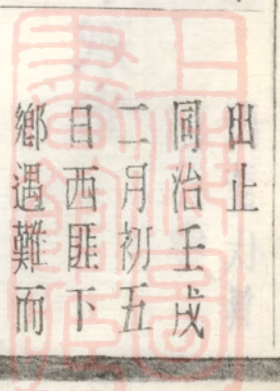 出止
同治壬戌
二月初五
日西匪下
鄉遇難而